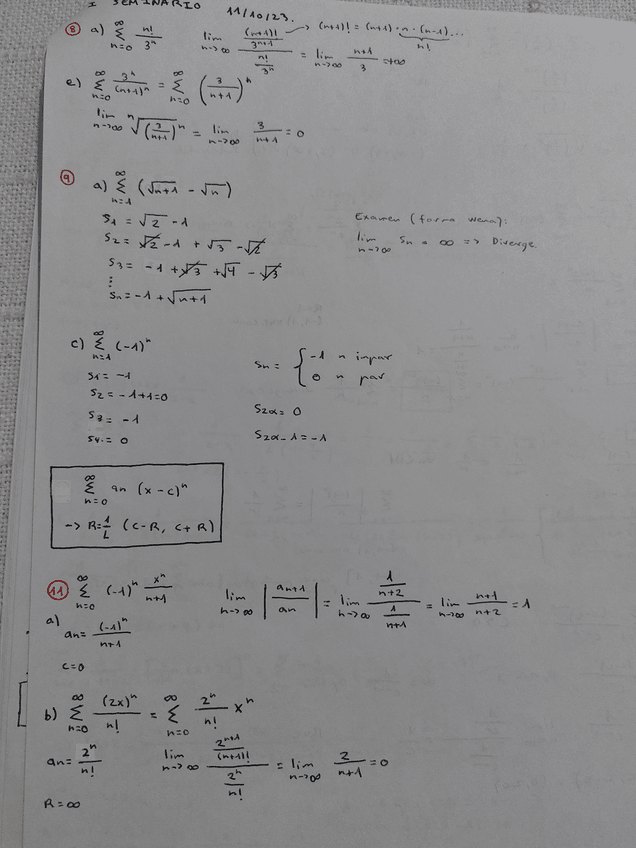 I SEMINARIO 11/10/23.
⑧ a) ∑_{n=0}^{∞} n!/3^n lim_{n→∞} ((n+1)!/3^{n+1})/(n!/3^n) = lim_{n→∞} (n+1)/3 = +∞ → (n+1)! = (n+1)·n·(n-1)... n!
e) ∑_{n=0}^{∞} 3^n/(n+1)^n = ∑_{n=0}^{∞} (3/(n+1))^n
lim_{n→∞} ⁿ√((3/(n+1))^n) = lim_{n→∞} 3/(n+1) = 0
⑨ a) ∑_{n=1}^{∞} (√(n+1) - √n)
S1 = √2 - 1
S2 = √2 - 1 + √3 - √2
S3 = -1 + √3 + √4 - √3
⋮
Sn = -1 + √(n+1)
Examen (forma wena):
lim_{n→∞} Sn = ∞ => Diverge.
c) ∑_{n=1}^{∞} (-1)^n
S1 = -1
S2 = -1+1=0
S3 = -1
S4 = 0
Sn = { -1 n impar
0 n par
S2α = 0
S2α-1 = -1
∑_{n=0}^{∞} an (x-c)^n
-> R = 1/L (c-R, c+R)
⑪ ∑_{n=0}^{∞} (-1)^n x^n/(n+1) lim_{n→∞} |an+1/an| = lim_{n→∞} (1/(n+2))/(1/(n+1)) = lim_{n→∞} (n+1)/(n+2) = 1
a) an = (-1)^n/(n+1)
c=0
b) ∑_{n=0}^{∞} (2x)^n/n! = ∑_{n=0}^{∞} 2^n/n! x^n
an = 2^n/n! lim_{n→∞} (2^{n+1}/(n+1)!)/(2^n/n!) = lim_{n→∞} 2/(n+1) = 0
R = ∞